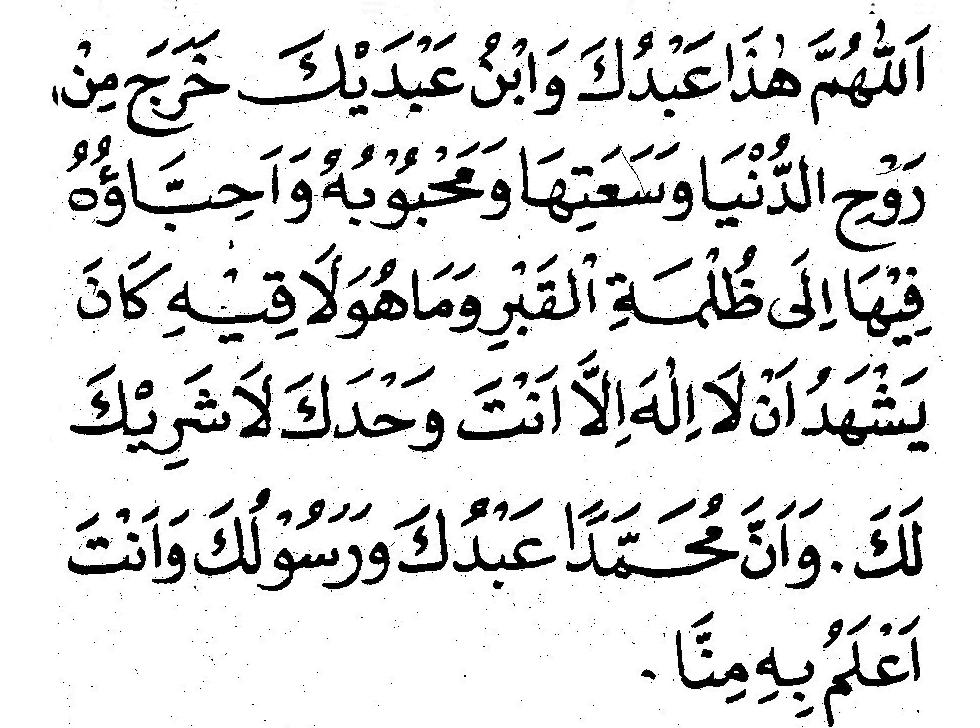 اَللّٰهُمَّ هٰذَا عَبْدُكَ وَابْنُ عَبْدَيْكَ خَرَجَ مِنْ
رَوْحِ الدُّنْيَا وَسَعَتِهَا وَمَحْبُوْبُهُ وَاَحِبَّاؤُهُ
فِيْهَا اِلَى ظُلْمَةِ الْقَبْرِ وَمَا هُوَ لَاقِيْهِ كَانَ
يَشْهَدُ اَنْ لَا اِلٰهَ اِلَّا اَنْتَ وَحْدَكَ لَا شَرِيْكَ
لَكَ . وَاَنَّ مُحَمَّدًا عَبْدُكَ وَرَسُوْلُكَ وَاَنْتَ
اَعْلَمُ بِهِ مِنَّا .